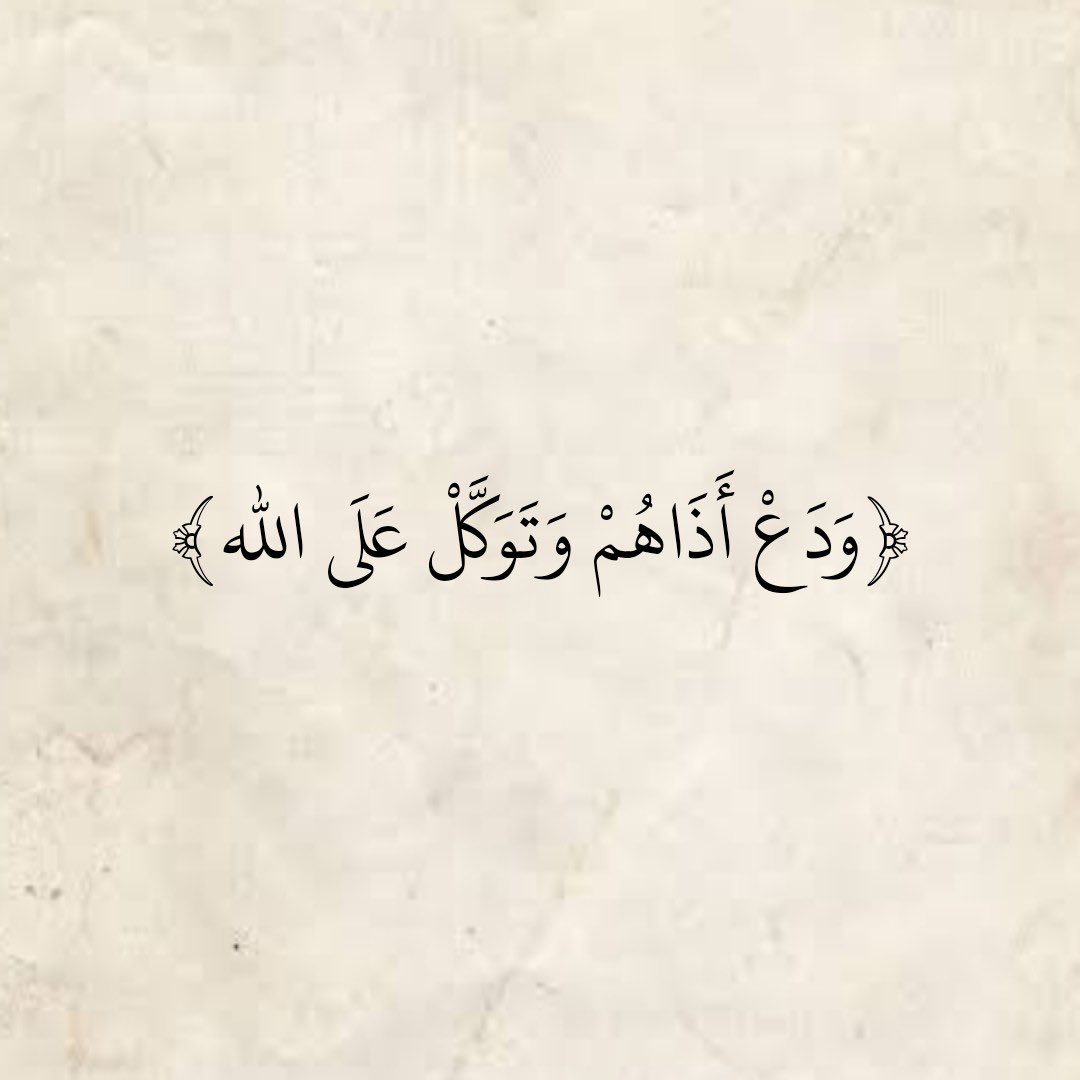 ﴿وَدَعْ أَذَاهُمْ وَتَوَكَّلْ عَلَى الله ﴾